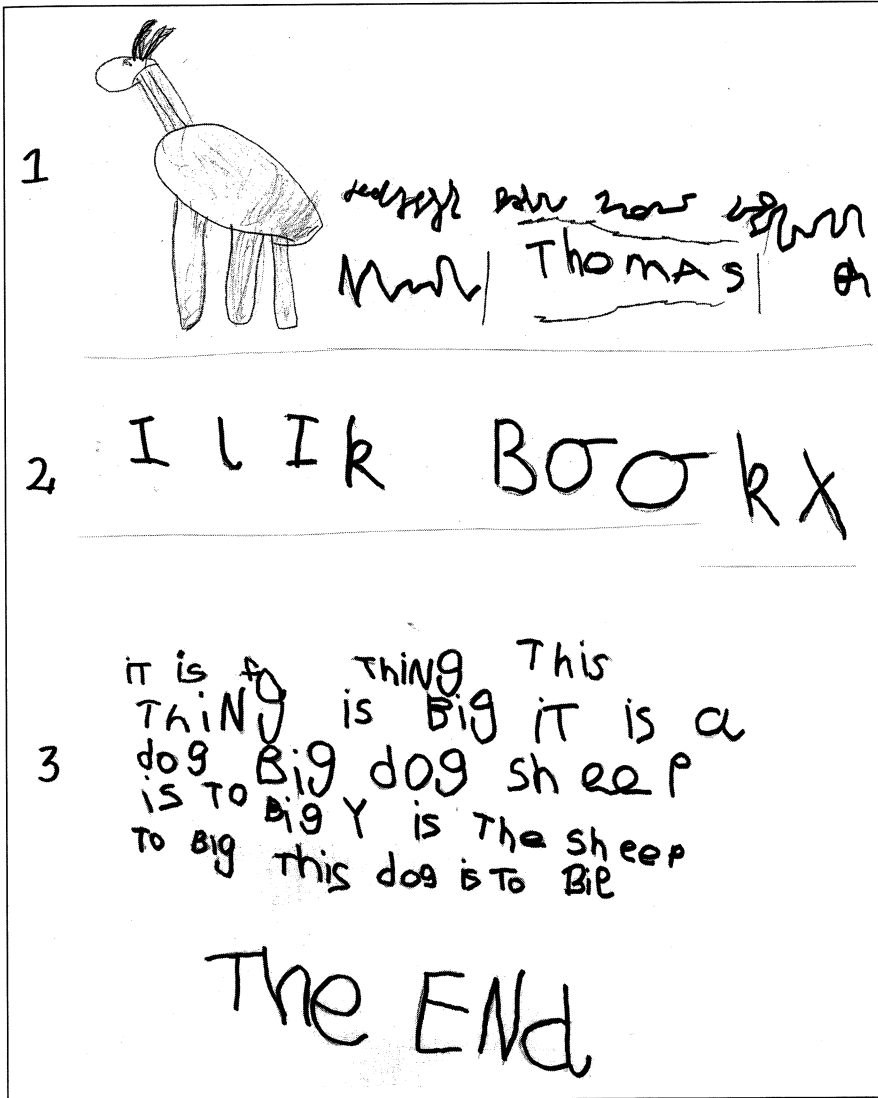 1
Thomas
2
I lIk BOOkX
3
iT is fg ThiNg This
ThiNg is Big iT is a
dog Big dog sheep
is To Big Y is The sheep
To Big This dog is To Bie
The ENd